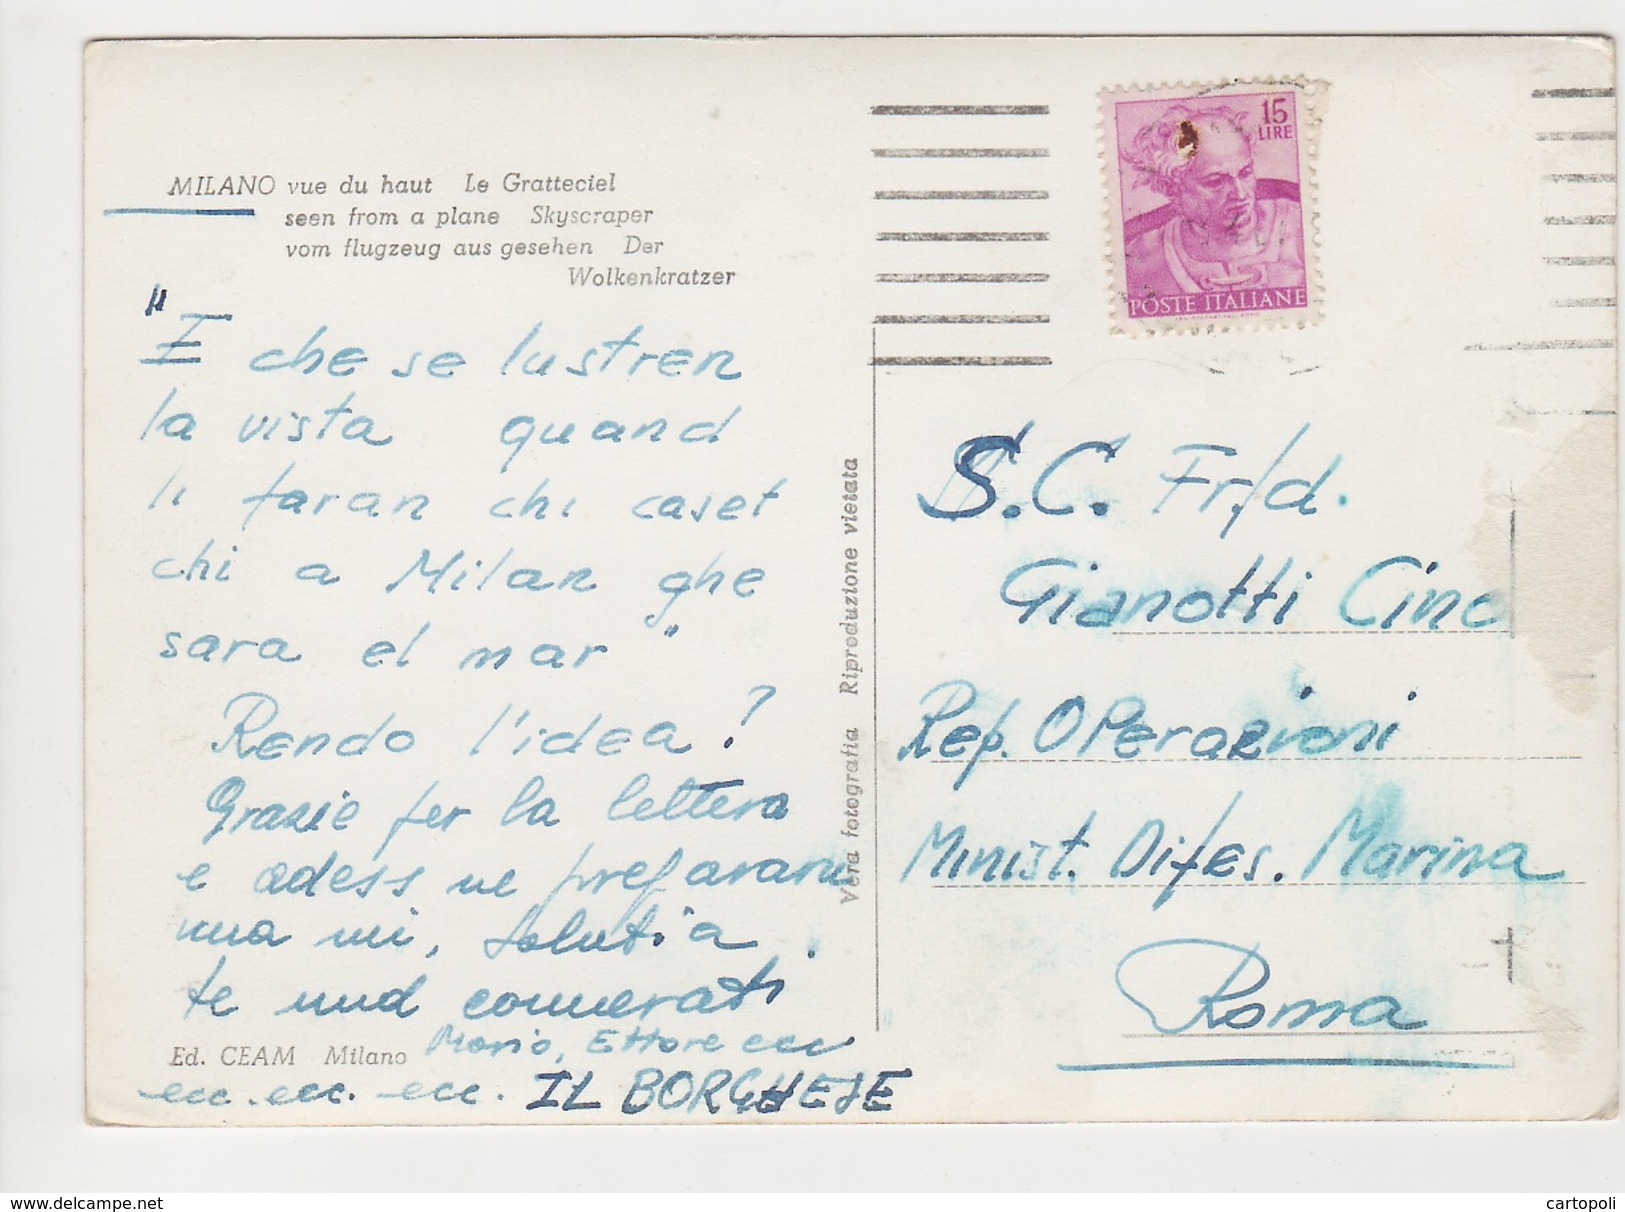 MILANO vue du haut Le Gratteciel
seen from a plane Skyscraper
vom flugzeug aus gesehen Der
Wolkenkratzer
"E che se lustren
la vista quand
li faran chi caset
chi a Milan ghe
sara el mar"
Rendo l'idea?
Grazie per la lettera
e adess ne preparane
nua mi, Saluti a
te und
Ed. CEAM Milano Mario, Ettore ecc
ecc. ecc. ecc. IL BORGHESE
Vera fotografia Riproduzione vietata
15
LIRE
POSTE ITALIANE
S.C. Fr/d.
Gianotti Cino
Rep. OPerazioni
Minist. Difes. Marina
Roma
delcampe.net
cartopoli